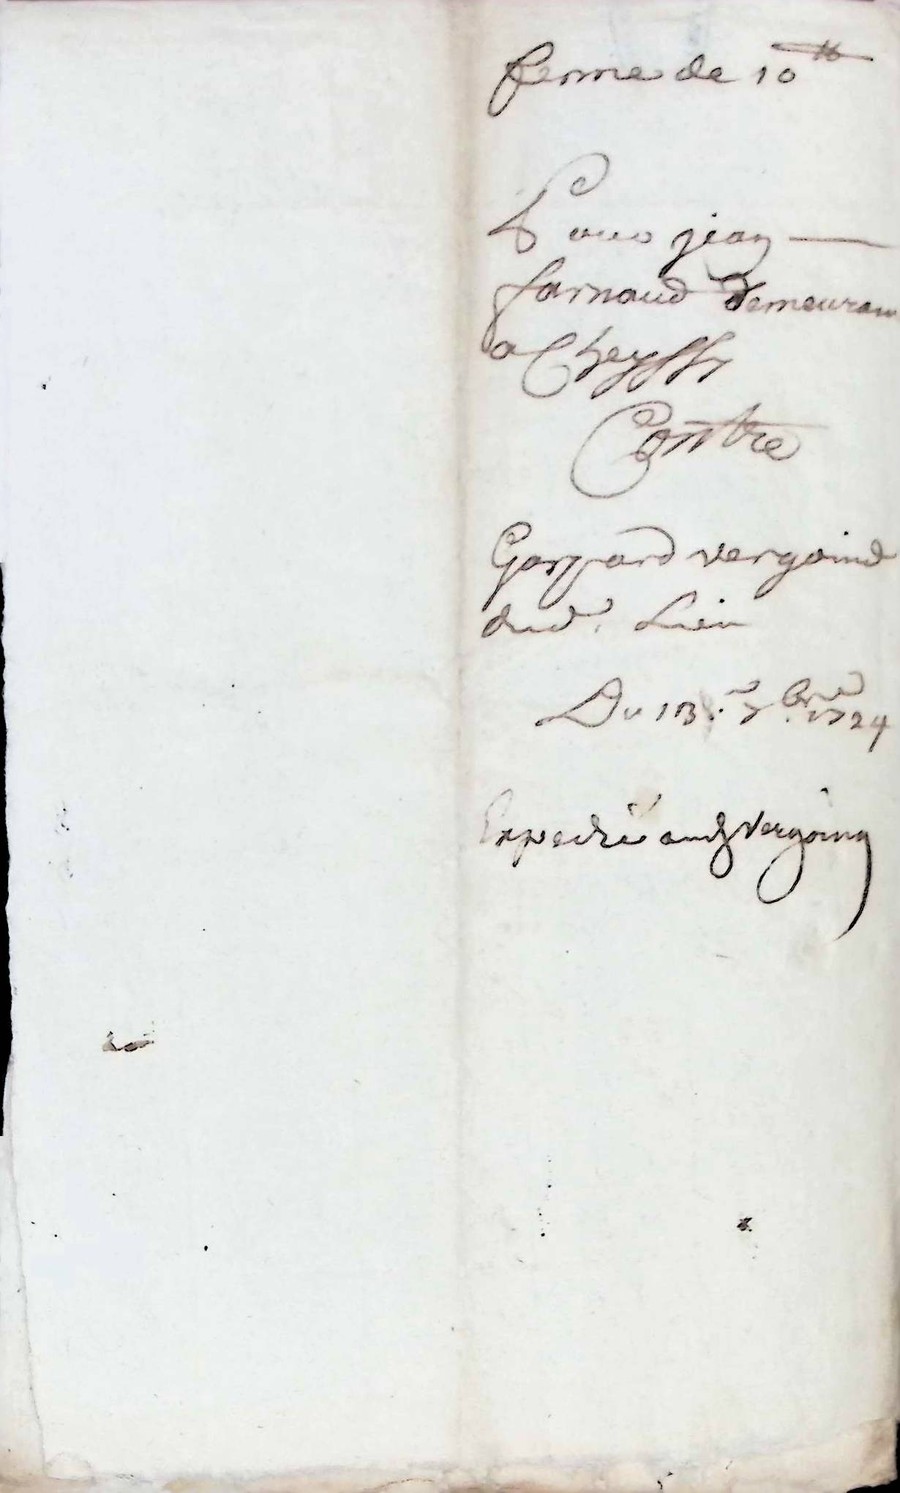 ferme de 10 ₶
Pour jean
farnaud demeuran
a Cheyssy
Contre
Gaspard vergoind
dud. Lieu
Du 13. 7bre 1724
Expedié aud vergoing